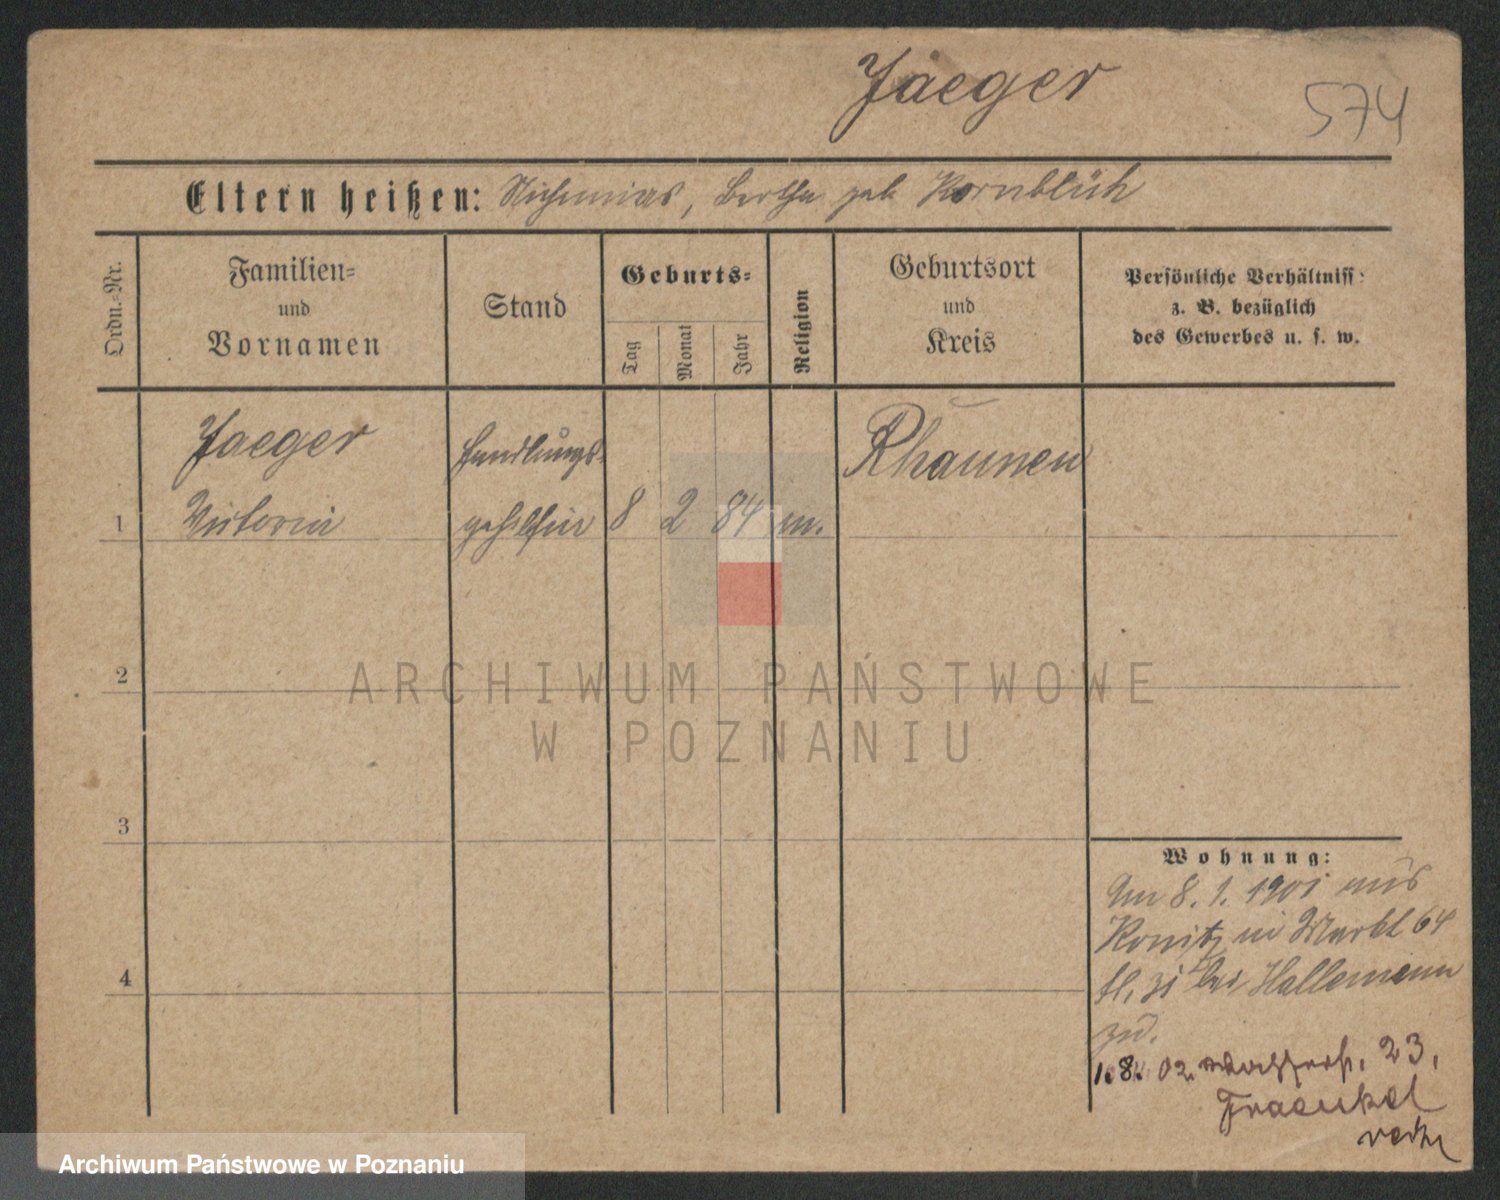 Jaeger
574
Eltern heißen: Nehemias, Bertha geb Kornblüh
Ordn.-Nr.
Familien-
und
Vornamen
Stand
Geburts-
Tag
Monat
Jahr
Religion
Geburtsort
und
Kreis
Persönliche Verhältniss:
z. B. bezüglich
des Gewerbes u. s. w.
Jaeger
Handlungs-
Rhaunen
1
Victoria
gehilfin
8
2
84
m.
2
ARCHIWUM PAŃSTWOWE
W POZNANIU
3
Wohnung:
Am 8. 1. 1901 aus
Konitz in Markt 64
bei Hallemann
4
zu.
02. 23,
Fraenkel
Archiwum Państwowe w Poznaniu